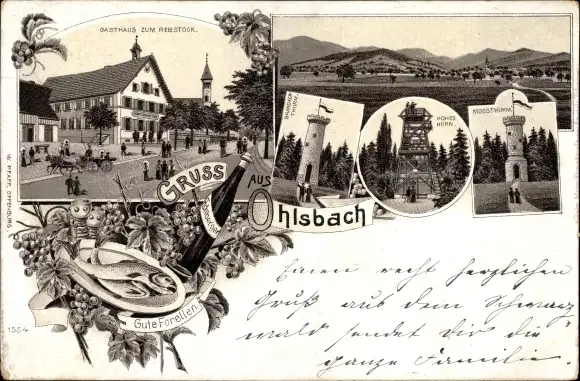 GASTHAUS ZUM REBSTOCK.
BRANDEK THURM.
HOHES HORN.
MOOSTHURM.
GRUSS AUS Ohlsbach
Gute Forellen.
W. PFAFF, OFFENBURG.
1554
Einen recht herzlichen
Gruß aus dem Schwarz
wald sendet Dir die
ganze Familie.